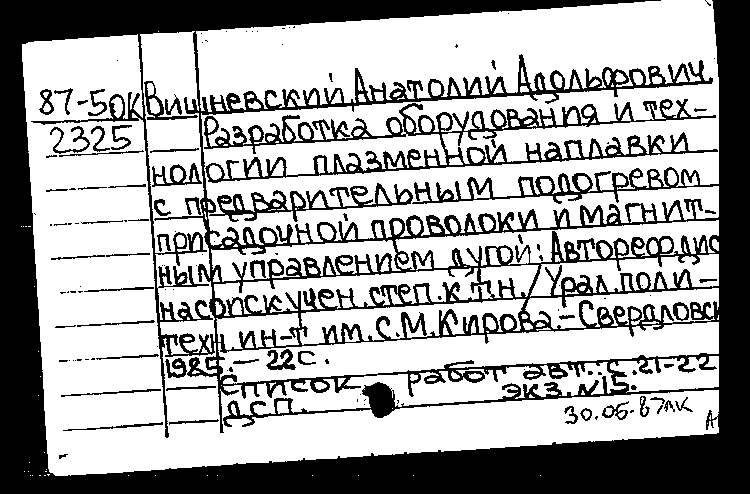 87-50К Вишневский, Анатолий Адольфович.
2325 Разработка оборудования и тех-
нологии плазменной наплавки
с предварительным подогревом
присадочной проволоки и магнит-
ным управлением дугой: Автореф.дис
на соиск.учен.степ.к.т.н./Урал.поли-
техн.ин-т им.С.М.Кирова.-Свердловск
1985.-22с.
Список работ авт.:с.21-22
ДСП. экз.№15.
30.06.87лк